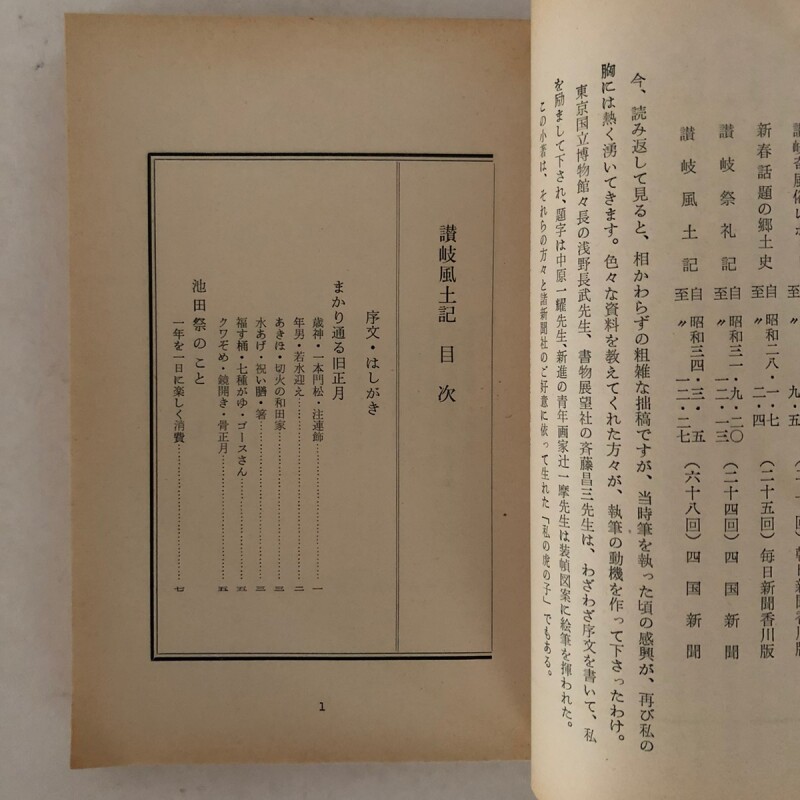 讃岐客風俗レポ
至〃 九・五
新春話題の郷土史 自昭和二八・一・七 (二十五回) 毎日新聞香川版
至〃 二・四
讃岐祭礼記 自昭和三一・九・二〇 (二十四回) 四国新聞
至〃 一二・一三
讃岐風土記 自昭和三四・三・五 (六十八回) 四国新聞
至〃 一二・二七
今、読み返して見ると、相かわらずの粗雑な拙稿ですが、当時筆を執った頃の感興が、再び私の
胸には熱く湧いてきます。色々な資料を教えてくれた方々が、執筆の動機を作って下さったわけ。
東京国立博物館々長の浅野長武先生、書物展望社の斉藤昌三先生は、わざわざ序文を書いて、私
を励まして下され、題字は中原一耀先生、新進の青年画家辻一摩先生は装幀図案に絵筆を揮われた。
この小著は、それらの方々と諸新聞社のご好意に依って生れた「私の虎の子」でもある。
讃岐風土記 目次
序文・はしがき
まかり通る旧正月
歳神・一本門松・注連飾……一
年男・若水迎え……二
あきほ・切火の和田家……三
水あげ・祝い膳・箸……三
福す桶・七種がゆ・ゴースさん……五
クワぞめ・鏡開き・骨正月……五
池田祭のこと
一年を一日に楽しく消費……七
1